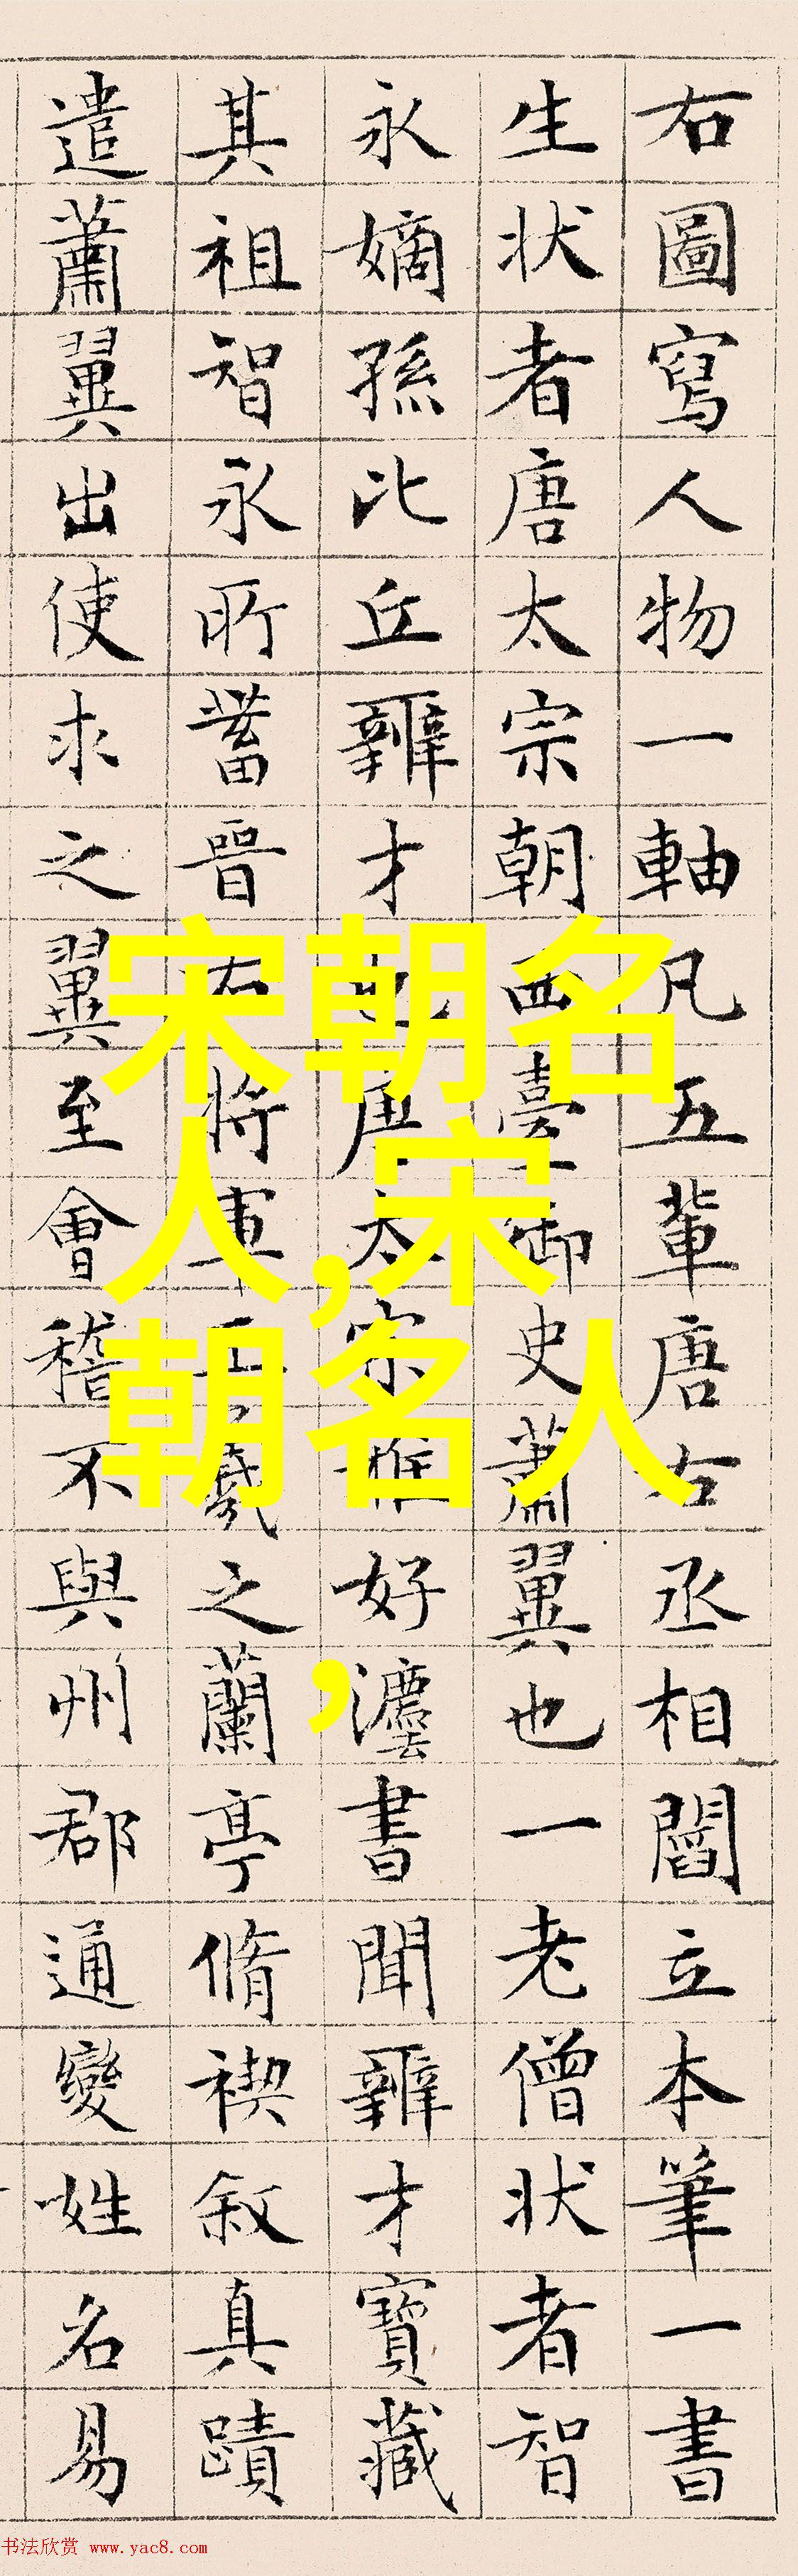 右圖寫人物一軸凡五輩唐右丞相閻立本筆一書
生状者唐太宗朝西臺御史蕭翼也一老僧状者智
永嫡孫比丘辯才也唐太宗雅好灋書聞辯才寶藏
其祖智永所蓄晉右將軍王羲之蘭亭脩禊叙真蹟
遣蕭翼出使求之翼至會稽不與州郡通變姓名易
宋朝名
人,宋
朝名人
,
书法欣赏 www.yac8.com